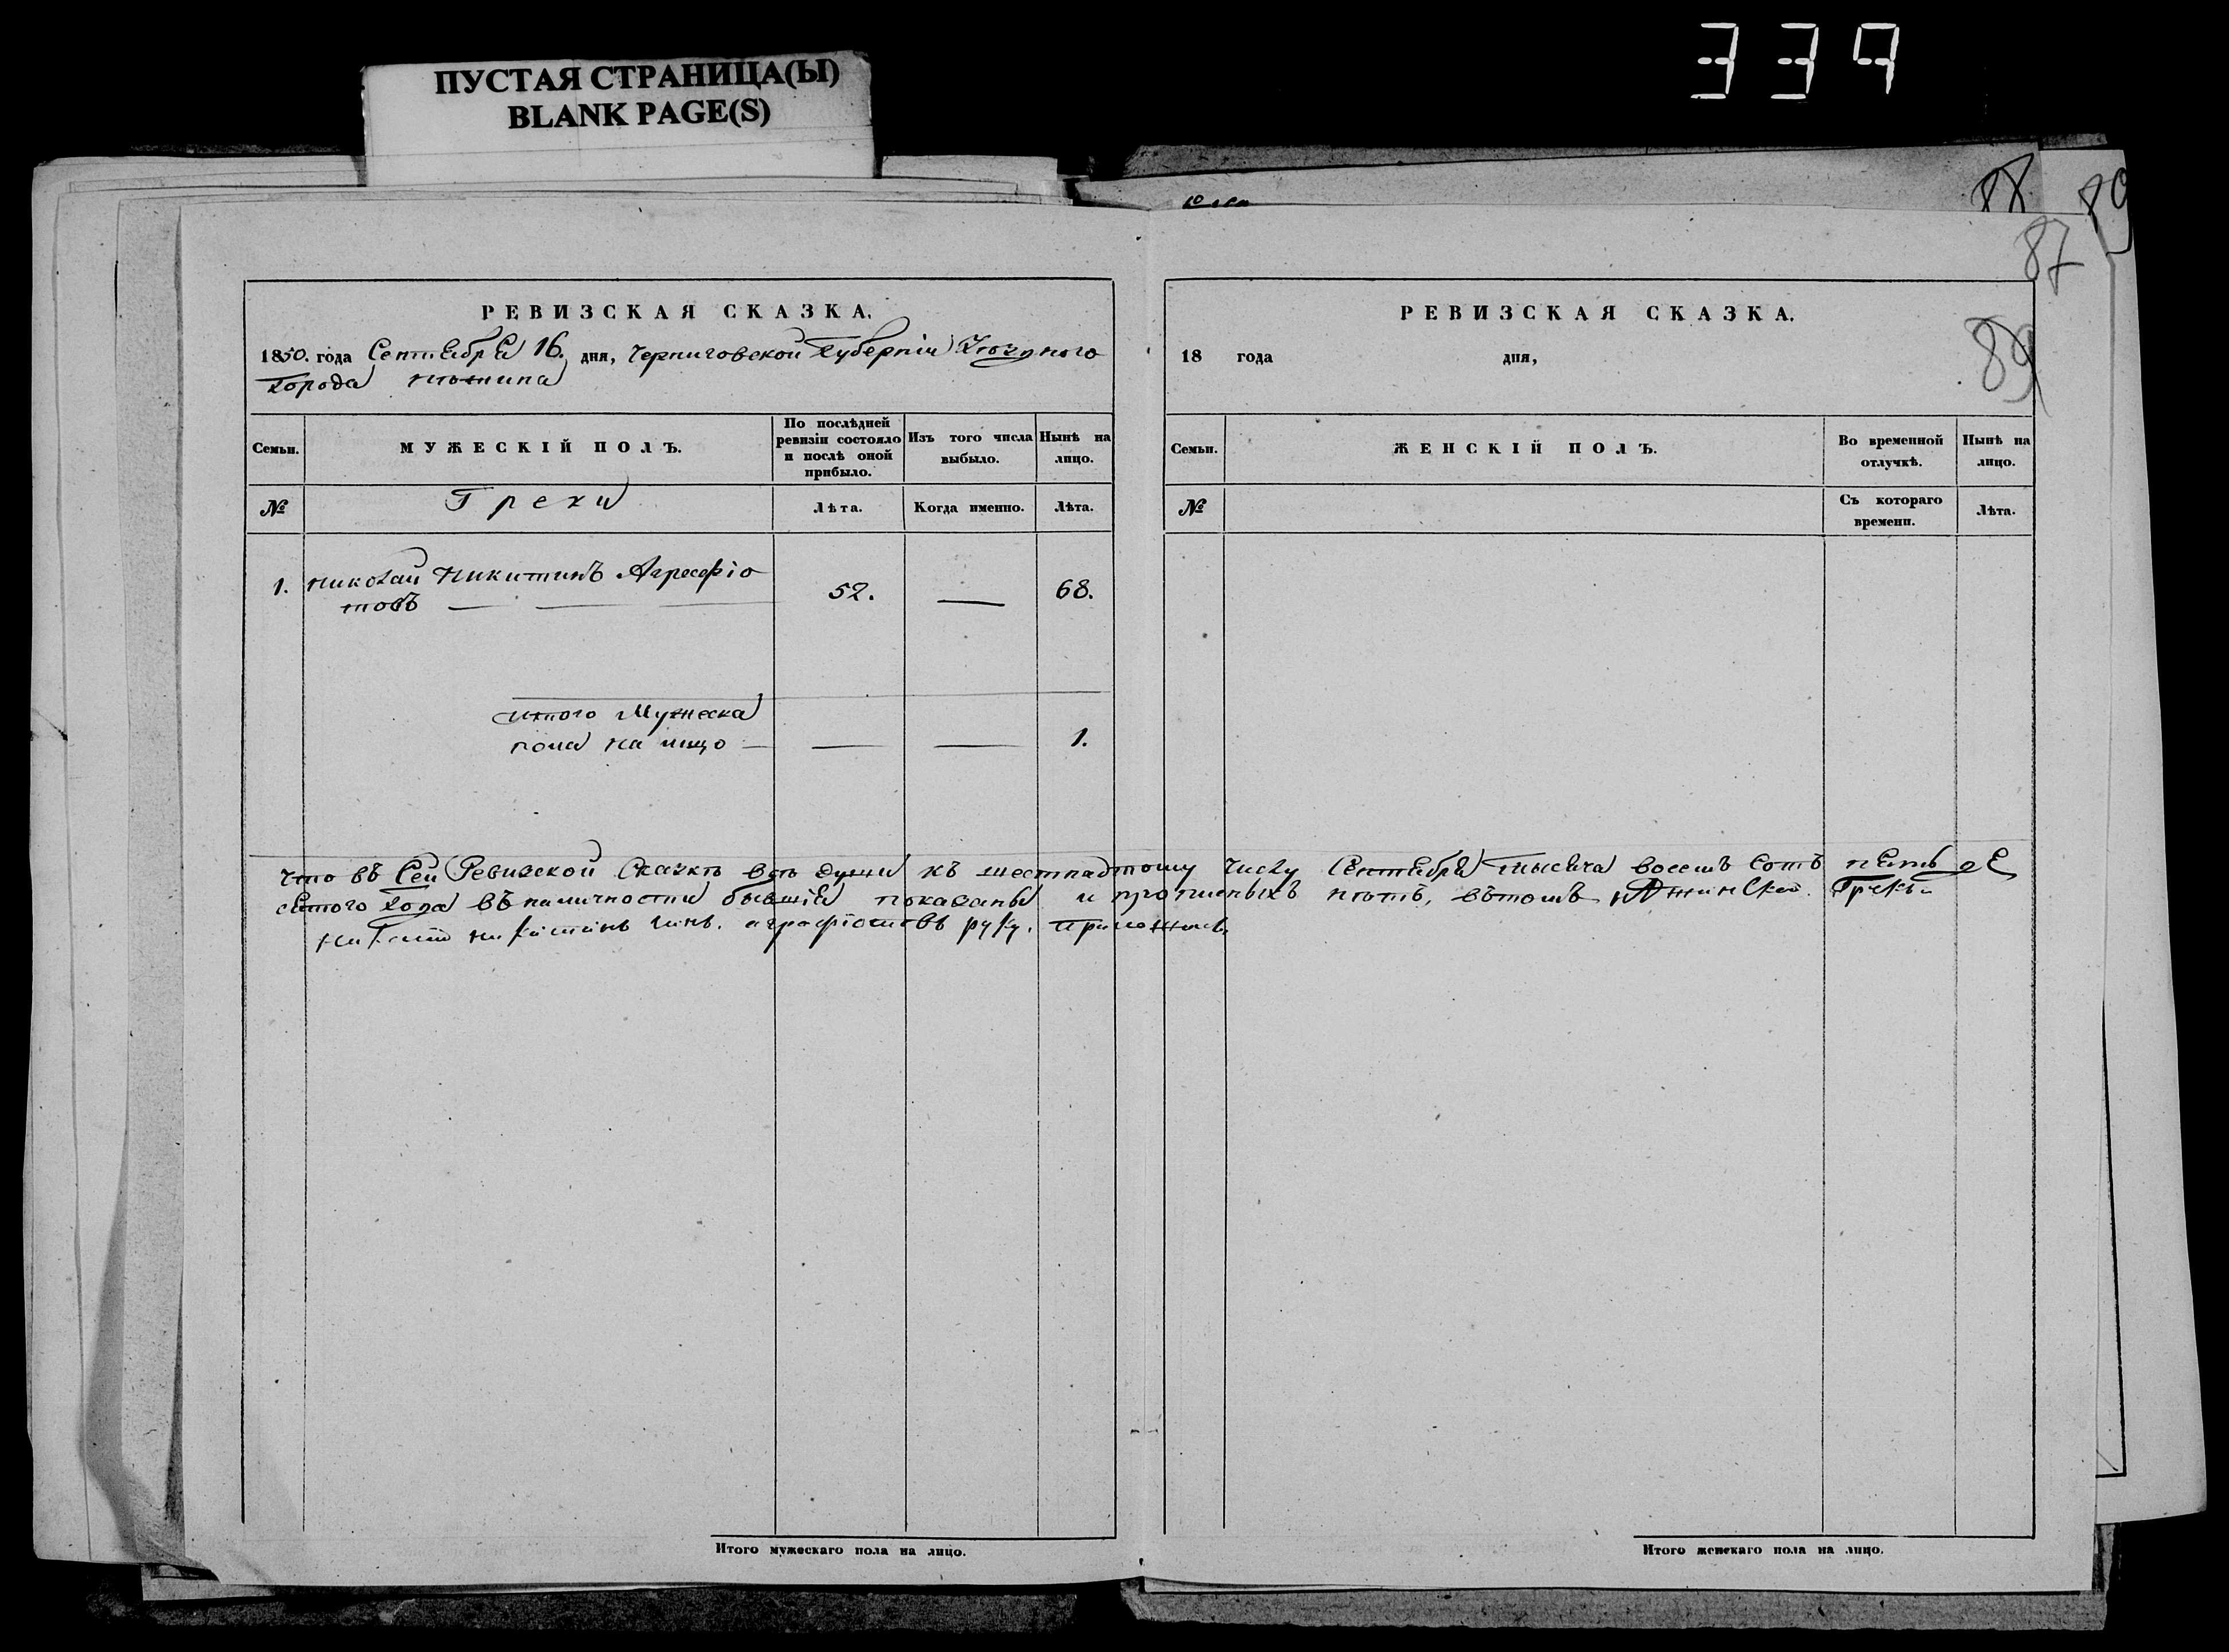 ПУСТАЯ СТРАНИЦА(Ы)
BLANK PAGE(S)
339
88
89
87
89
РЕВИЗСКАЯ СКАЗКА.
1850. года Сентября 16. дня, Черниговской Губерніи Уѣзднаго
города Нѣжина
Семьи.
МУЖЕСКІЙ ПОЛЪ.
По послѣдней ревизіи состояло и послѣ оной прибыло.
Изъ того числа выбыло.
Нынѣ на лицо.
№
Греки
Лѣта.
Когда именно.
Лѣта.
1. Николай Никитинъ Агресфіо
товъ — — — 52. — 68.
Итого Мужеска
пола на лицо — — — 1.
РЕВИЗСКАЯ СКАЗКА.
18 года дня,
Семьи.
ЖЕНСКІЙ ПОЛЪ.
Во временной отлучкѣ.
Нынѣ на лицо.
№
Съ котораго времени.
Лѣта.
что въ Сей Ревизской Сказкѣ всѣ души къ шестнадтому числу Сентября тысяча восемъ Сотъ пять де
сятого года въ наличности бывшія показаны и прописныхъ нѣтъ, въ томъ Нѣжинскій Грекъ
Никитинъ агрофіотовъ руку приложилъ
Итого мужескаго пола на лицо.
Итого женскаго пола на лицо.